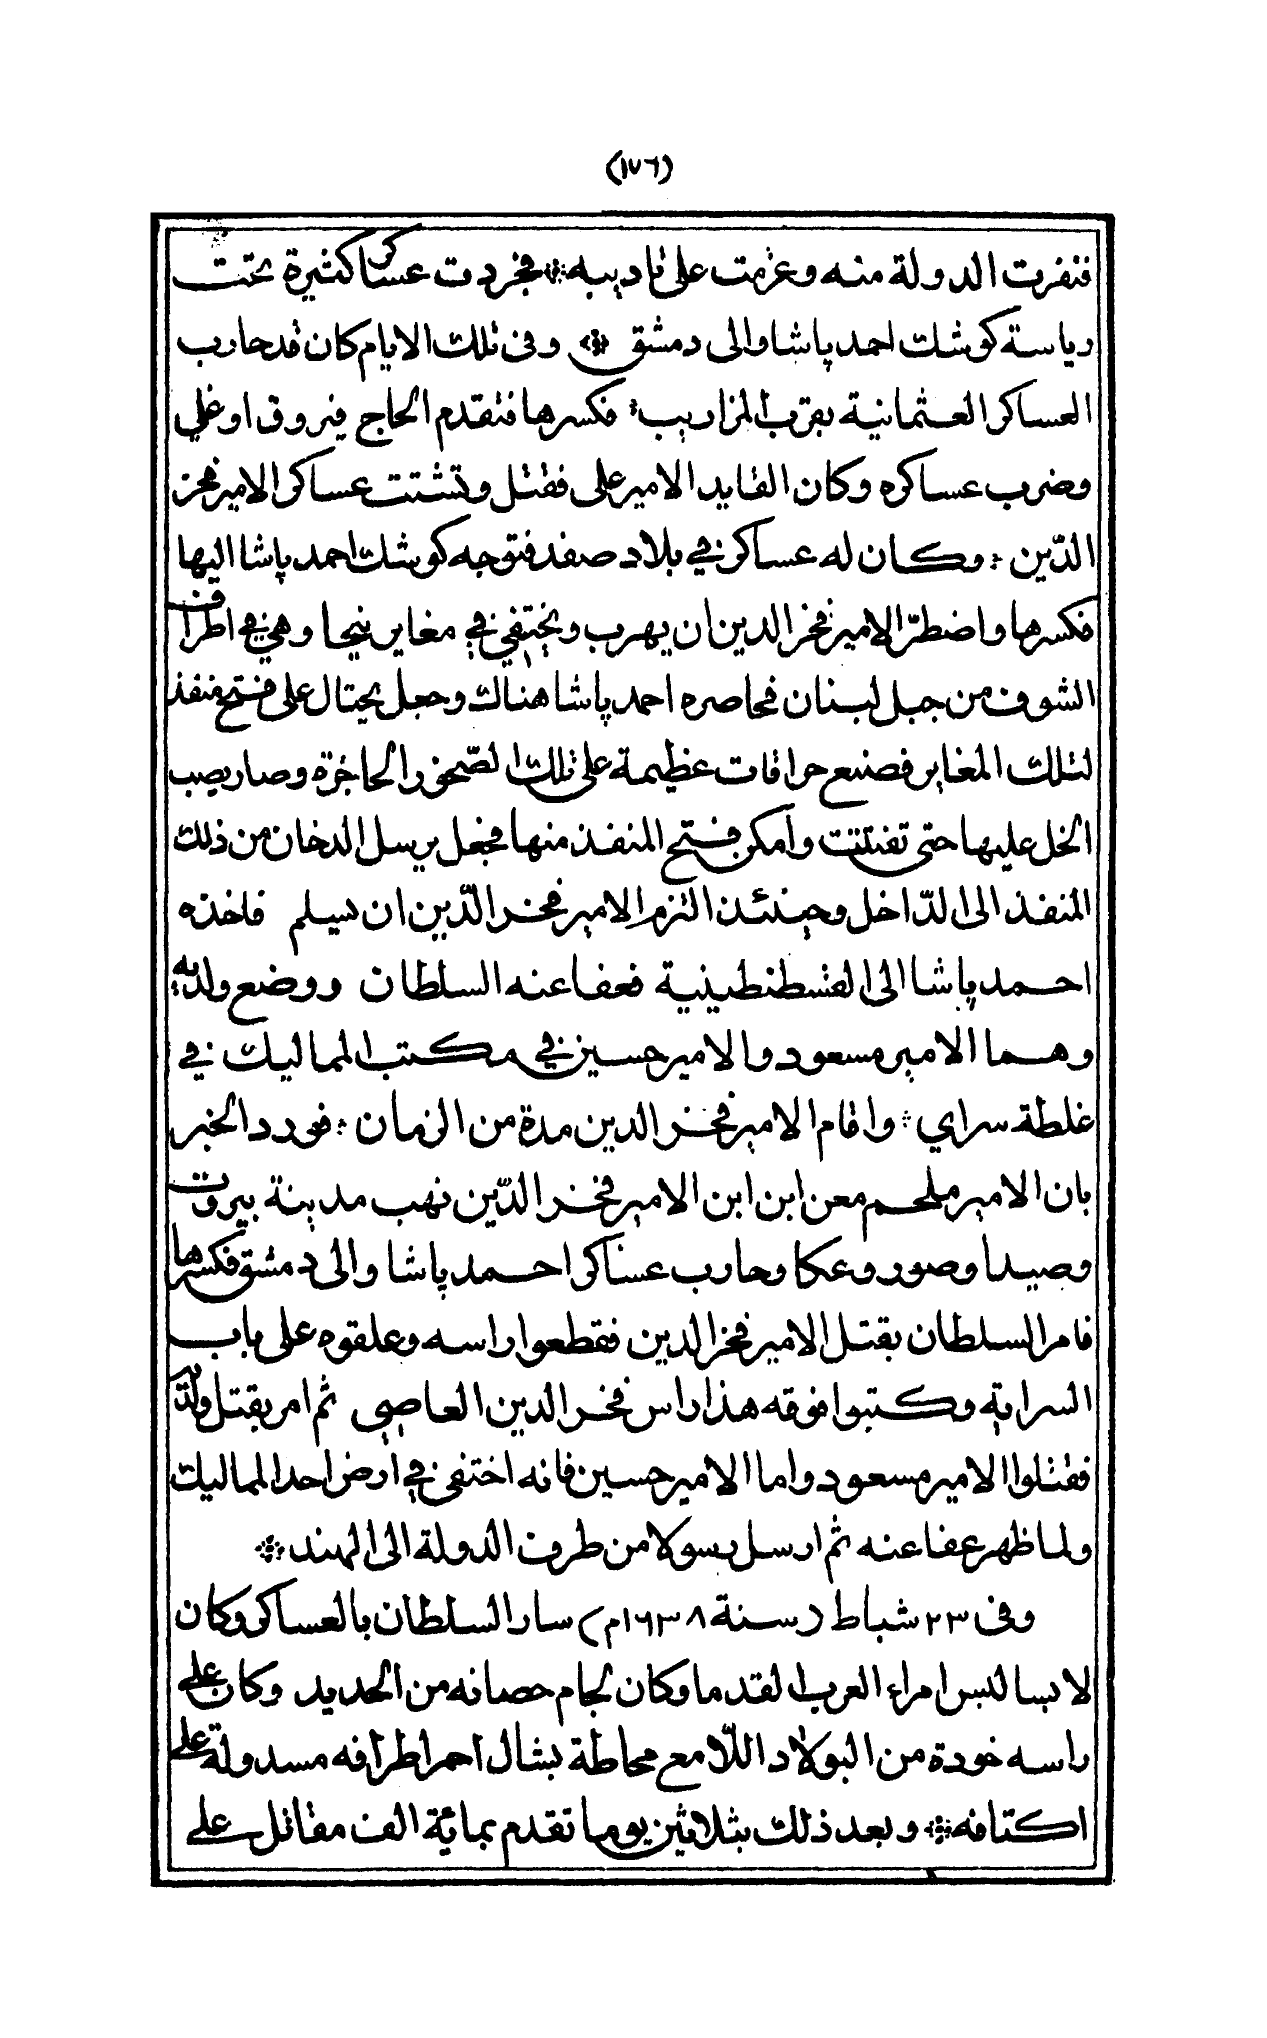 (١٧٦)
فنفرت الدولة منه وعزمت على تاديبه ❊ فجردت عساكر كثيرة تحت
رياسة كوشك احمد پاشا والى دمشق ❊ وفى تلك الايام كان قد حارب
العساكر العثمانية بقرب المزاريب ؛ فكسرها فتقدم الحاج فيروق اوغلي
وضرب عساكره وكان القايد الامير على فقتل وتشتت عساكر الامير فخر
الدّين ؛ وكان له عساكر في بلاد صفد فتوجه كوشك احمد پاشا اليها
فكسرها واضطرّ الامير فخر الدين ان يهرب ويختفي في مغاير نيحا وهي في اطراف
الشوف من جبل لبنان فحاصره احمد پاشا هناك وجعل يحتال على فتح منفذ
لتلك المغاير فصنع حراقات عظيمة على تلك الصّخور الحاجزة وصار يصب
الخل عليها حتى تفتتت وأمكن فتح المنفذ منها فجعل يرسل الدخان من ذلك
المنفذ الى الدّاخل وحينئذ التزم الامير فخر الدّين ان يسلم فاخذه
احمد پاشا الى القسطنطينية فعفا عنه السلطان ووضع ولديه
وهما الامير مسعود والامير حسين في مكتب المماليك في
غلطة سراي ؛ واقام الامير فخر الدين مدة من الزمان ؛ فورد الخبر
بان الامير ملحم معن ابن ابن الامير فخر الدّين نهب مدينة بيروت
وصيدا وصور وعكا وحارب عساكر احمد پاشا والى دمشق فكسرها
فامر السلطان بقتل الامير فخر الدين فقطعوا راسه وعلقوه على باب
السراية وكتبوا فوقه هذا راس فخر الدين العاصي ثم امر بقتل ولديه
فقتلوا الامير مسعود واما الامير حسين فانه اختفى في ارض احد المماليك
ولما ظهر عفا عنه ثم ارسل رسولا من طرف الدولة الى الهند ❊
وفى ٢٣ شباط (سنة ١٦٣٨م) سار السلطان بالعساكر وكان
لابسا لبس امراء العرب القدما وكان لجام حصانه من الحديد وكان على
راسه خودة من البولاد اللّامع محاطة بشال احمر اطرافه مسدولة على
اكتافه ❊ وبعد ذلك بثلاثين يوما تقدم بماية الف مقاتل على